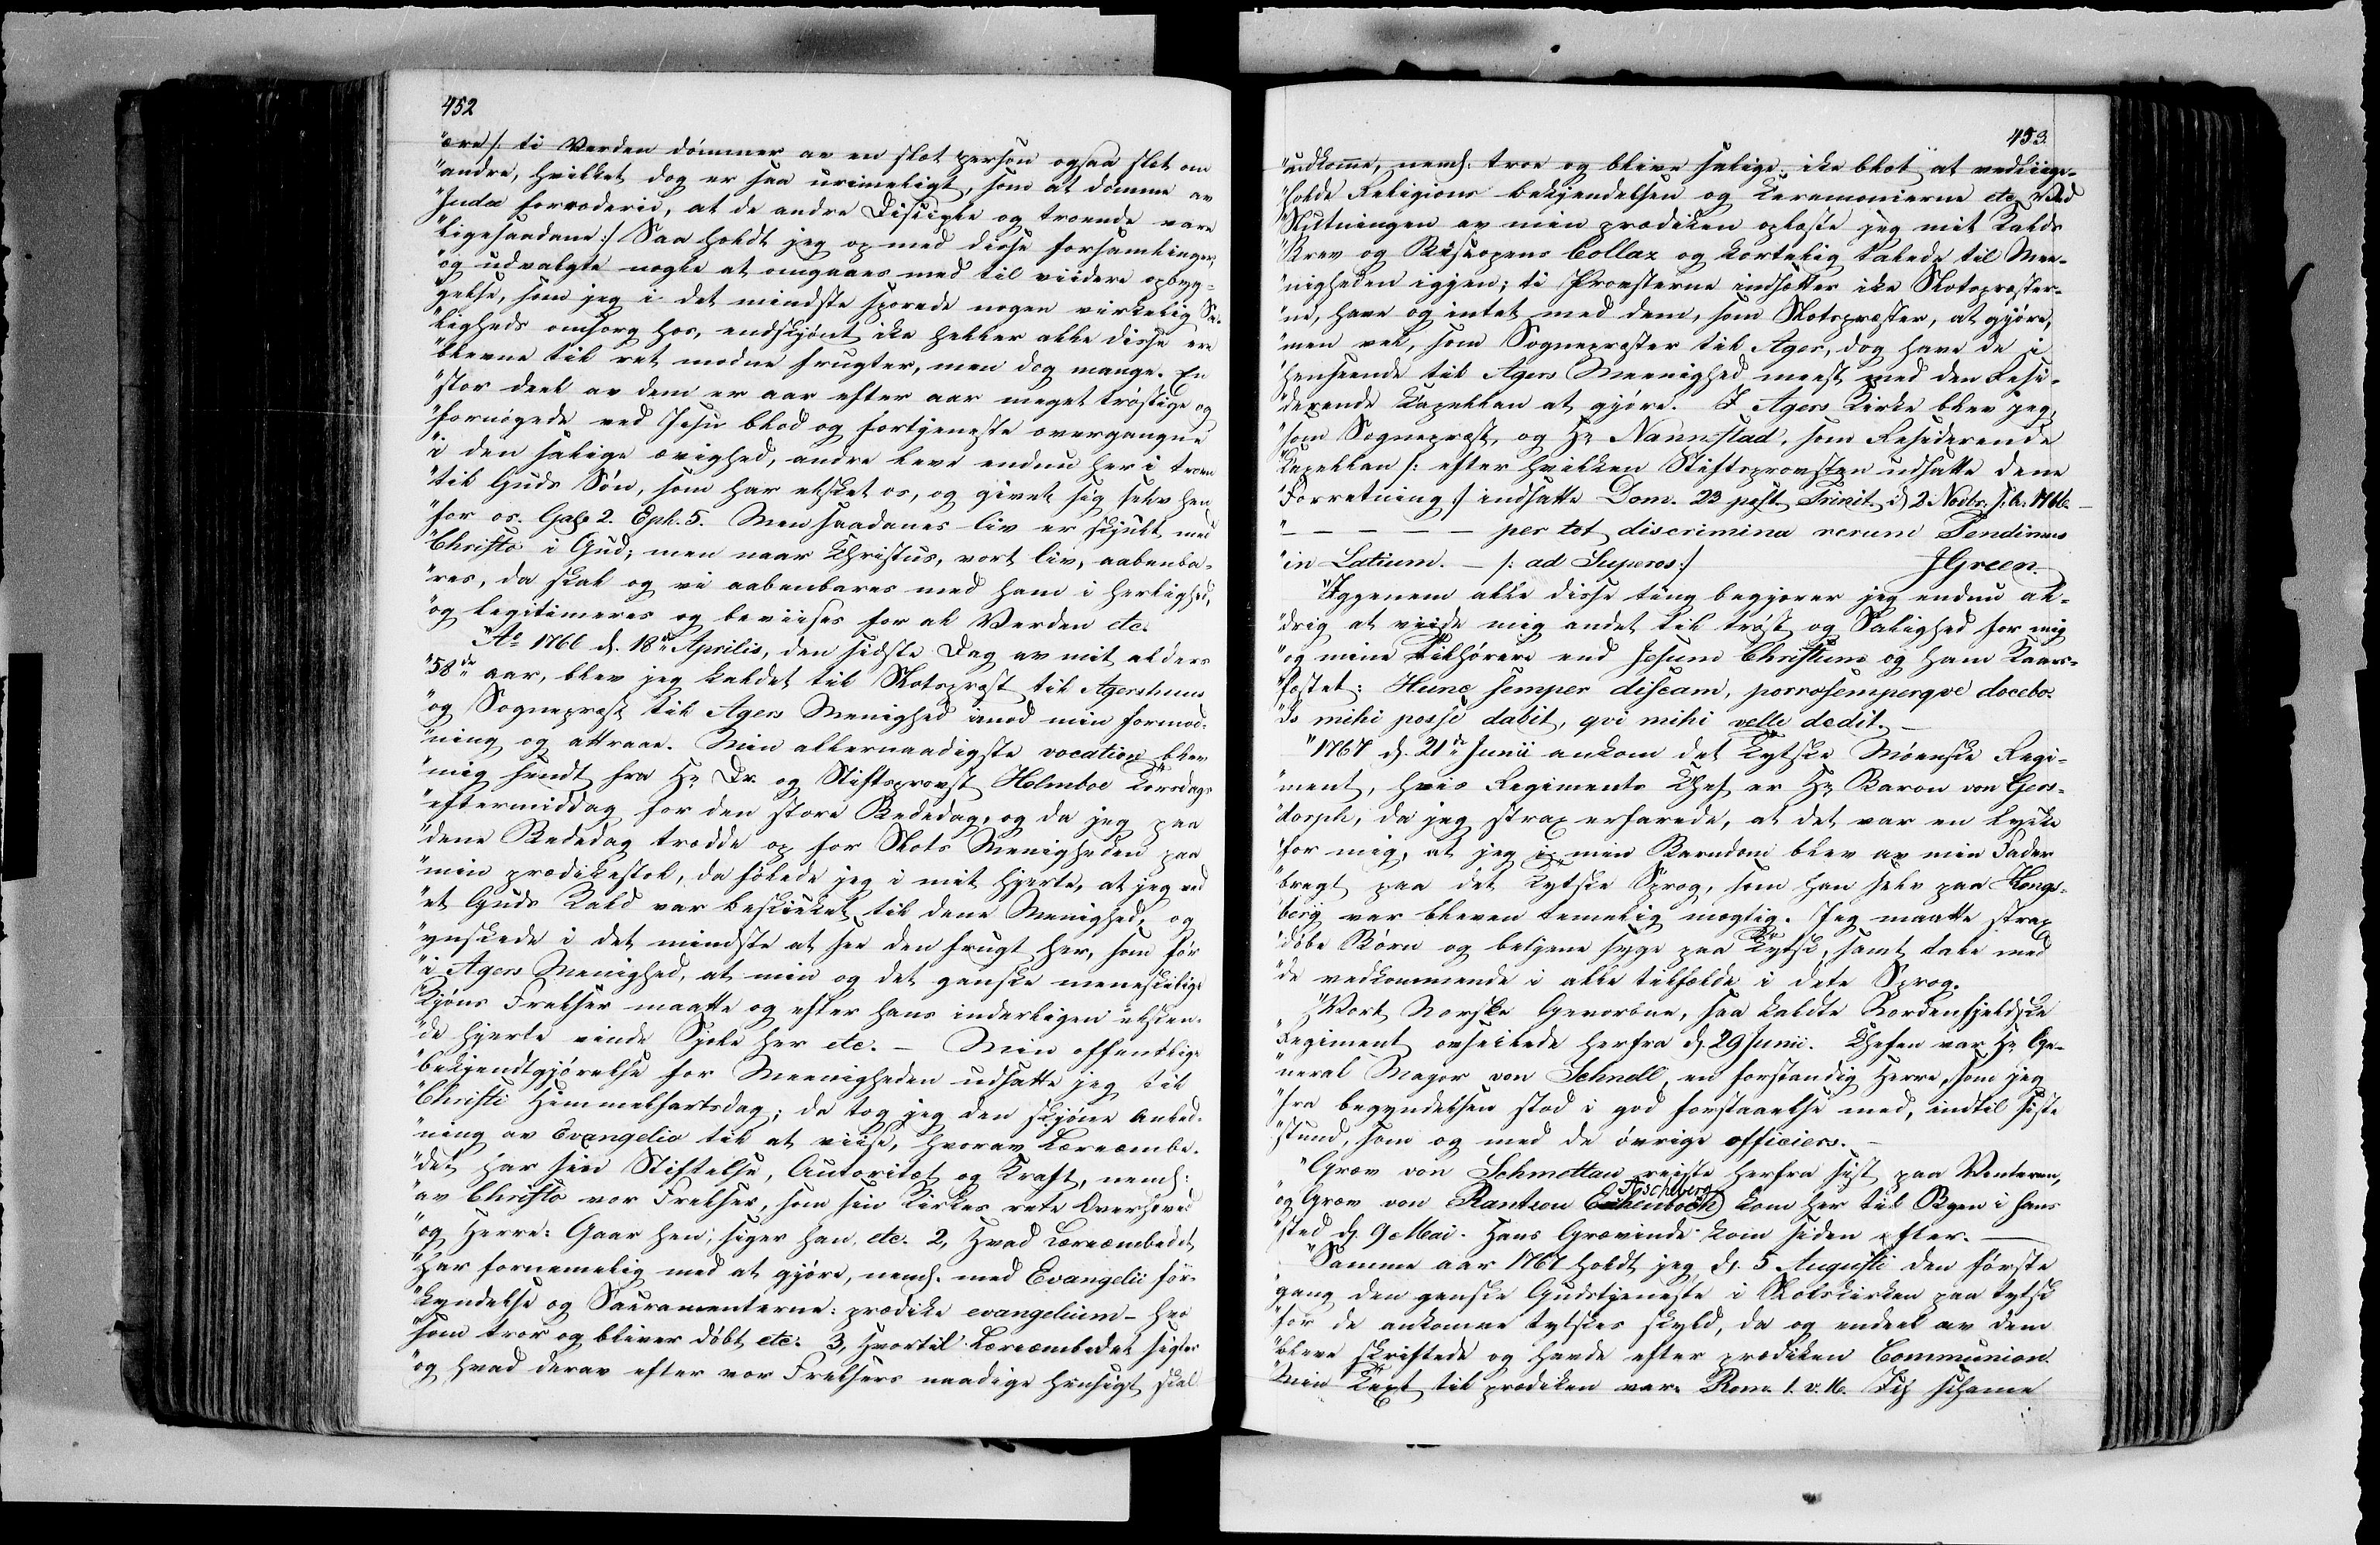 452
"ere /: ti Verden dömmer av en slet person ogsaa slet om
"andre, hvilket dog er saa urimeligt, som at dömme av
"Judæ forræderie, at de andre Disciple og troende vare
"ligesaadane :/ Saa holdt jeg op med disse forsamlinger,
"og udvalgte nogle at omgaaes med til viidere opbyg-
"gelse, som jeg i det mindste sporede nogen virkelig Sa-
"ligheds omsorg hos, endskjönt ike heller alle disse ere
"blevne til ret modne frugter, men dog mange. En
"stor deel av dem er aar efter aar meget tröstige og
"fornögede ved Jesu blod og fortjeneste overgangne
"i den salige ævighed, andre leve endnu her i troen
"til Guds Sön, som har elsket os, og givet sig selv hen
"for os. Gal. 2. Eph. 5. Men saadanes liv er skjult med
"Christo i Gud; men naar Christus, vort liv, aabenba-
"res, da skal og vi aabenbares med ham i herlighed,
"og legitimeres og beviises for al Verden etc.
"Ao 1766 d. 18de Aprilis, den sidste Dag av mit alders
"58de aar, blev jeg kaldet til Slotspræst til Agershuus
"og Sognepræst til Agers Menighed imod min formod-
"ning og attraae. Min allernaadigste vocation blev
"mig sendt fra Hr Dr. og Stiftsprovst Holmboe Torsdags
"eftermiddag for den store Bededag, og da jeg paa
"dene Bededag trædde op for Slots Menigheden paa
"min prædikestol, da fölede jeg i mit hjerte, at jeg ved
"et Guds Kald var beskikket til dene Menighed, og
"ynskede i det mindste at see den frugt her, som för
"i Agers Menighed, at min og det ganske meneskelige
"Kjöns Frelser maatte og efter hans inderligen elsken-
"de hjerte vinde Sjele her etc. – Min offentlige
"bekjendtgjörelse for Meenigheden udsatte jeg til
"Christi Himmelfartsdag; da tog jeg den skjöne anled-
"ning av Evangelio til at viise, hvorav Læreæmbe-
"det har sin Stiftelse, Autoritet og Kraft, neml:
"av Christo vor Frelser, som sin Kirkes rete Overhoved
"og Herre: Gaar hen, siger han, etc. 2, Hvad Læreæmbedet
"har fornemelig med at gjöre, neml. med Evangelii for-
"kyndelse og Sacramenterne: prædike evangelium – hvo
"som tror og bliver döbt etc. 3, Hvortil Læreæmbedet sigter
"og hvad derav efter vor Frelsers naadige hensigt skal
453.
"udkomme, neml. troe og blive salige, ike blot at vedliige-
"holde Religions bekjendelsen og Ceremonierne etc. Ved
"Slutningen av min prædiken oplæste jeg mit Kalds
"Brev og Biskopens Collaz og kortelig talede til Mee-
"nigheden iggjen; ti Provsterne indsætter ike Slotspræster-
"ne, have og intet med dem, som Slotspræster, at gjöre,
"men vel, som Sognepræster til Ager, dog have de i
"henseende til Agers Meenighed meest med den Resi-
"derende Capellan at gjöre. I Agers Kirke blev jeg,
"som Sognepræst, og Hr Nannestad, som Residerende
"Capellan /: efter hvilken Stiftsprovsten udsatte dene
"Forretning :/ indsatte Dom. 23 post Trinit. d. 2 Novbr. s. a. 1766. –
" – – – – per tot discrimina rerum Tendimus
"in Latium. – /: ad Superos :/ JGreen.
"Iggjenem alle disse ting begjærer jeg endnu al-
"drig at viide mig andet til tröst og Salighed for mig
"og mine Tilhörere end Jesum Christum og ham Kaars-
"fæstet: Hunc semper discam, porro semperqve docebo.
"Is mihi posse dabit, qvi mihi velle dedit. –
"1767 d. 21de Junii ankom det Tytske Möenske Regi-
"ment, hvis Regiments Chef er Hr Baron von Gers-
"dorph, da jeg strax erfarede, at det var en Lykke
"for mig, at jeg i min Barndom blev av min Fader
"bragt paa det Tytske Sprog, som han selv paa Kongs-
"berg var bleven temelig mægtig. Jeg maatte strax
"döbe Börn og betjene syge paa Tytsk, samt tale med
"de vedkommende i alle tilfælde i dete Sprog.
"Vort Norske Gevorbne, saa kaldte Nordenfjeldske
"Regiment avseilede herfra d. 29 Junii. Chefen var Hr Ge-
"neral Major von Schnell, en forstandig Herre, som jeg
"fra begyndelsen stod i god forstaaelse med, indtil siste
"stund, som og med de övrige officiers. –
"Grev von Schmettau reiste herfra sist paa Vinteren,
Ascheberg
"og Grev von Rantzou kom her til Byen i hans
"sted d. 9 Mai. Hans Grevinde kom siden efter. –
"Samme aar 1767 holdt jeg d. 5 Augusti den förste
"gang den ganske Gudstjeneste i Slotskirken paa tytsk
"for de ankomne tytskes skyld, da og endeel av dem
"bleve skriftede og havde efter prædiken Communion.
"Min Text til prædiken var: Rom. 1. v. 16. Ich schäme